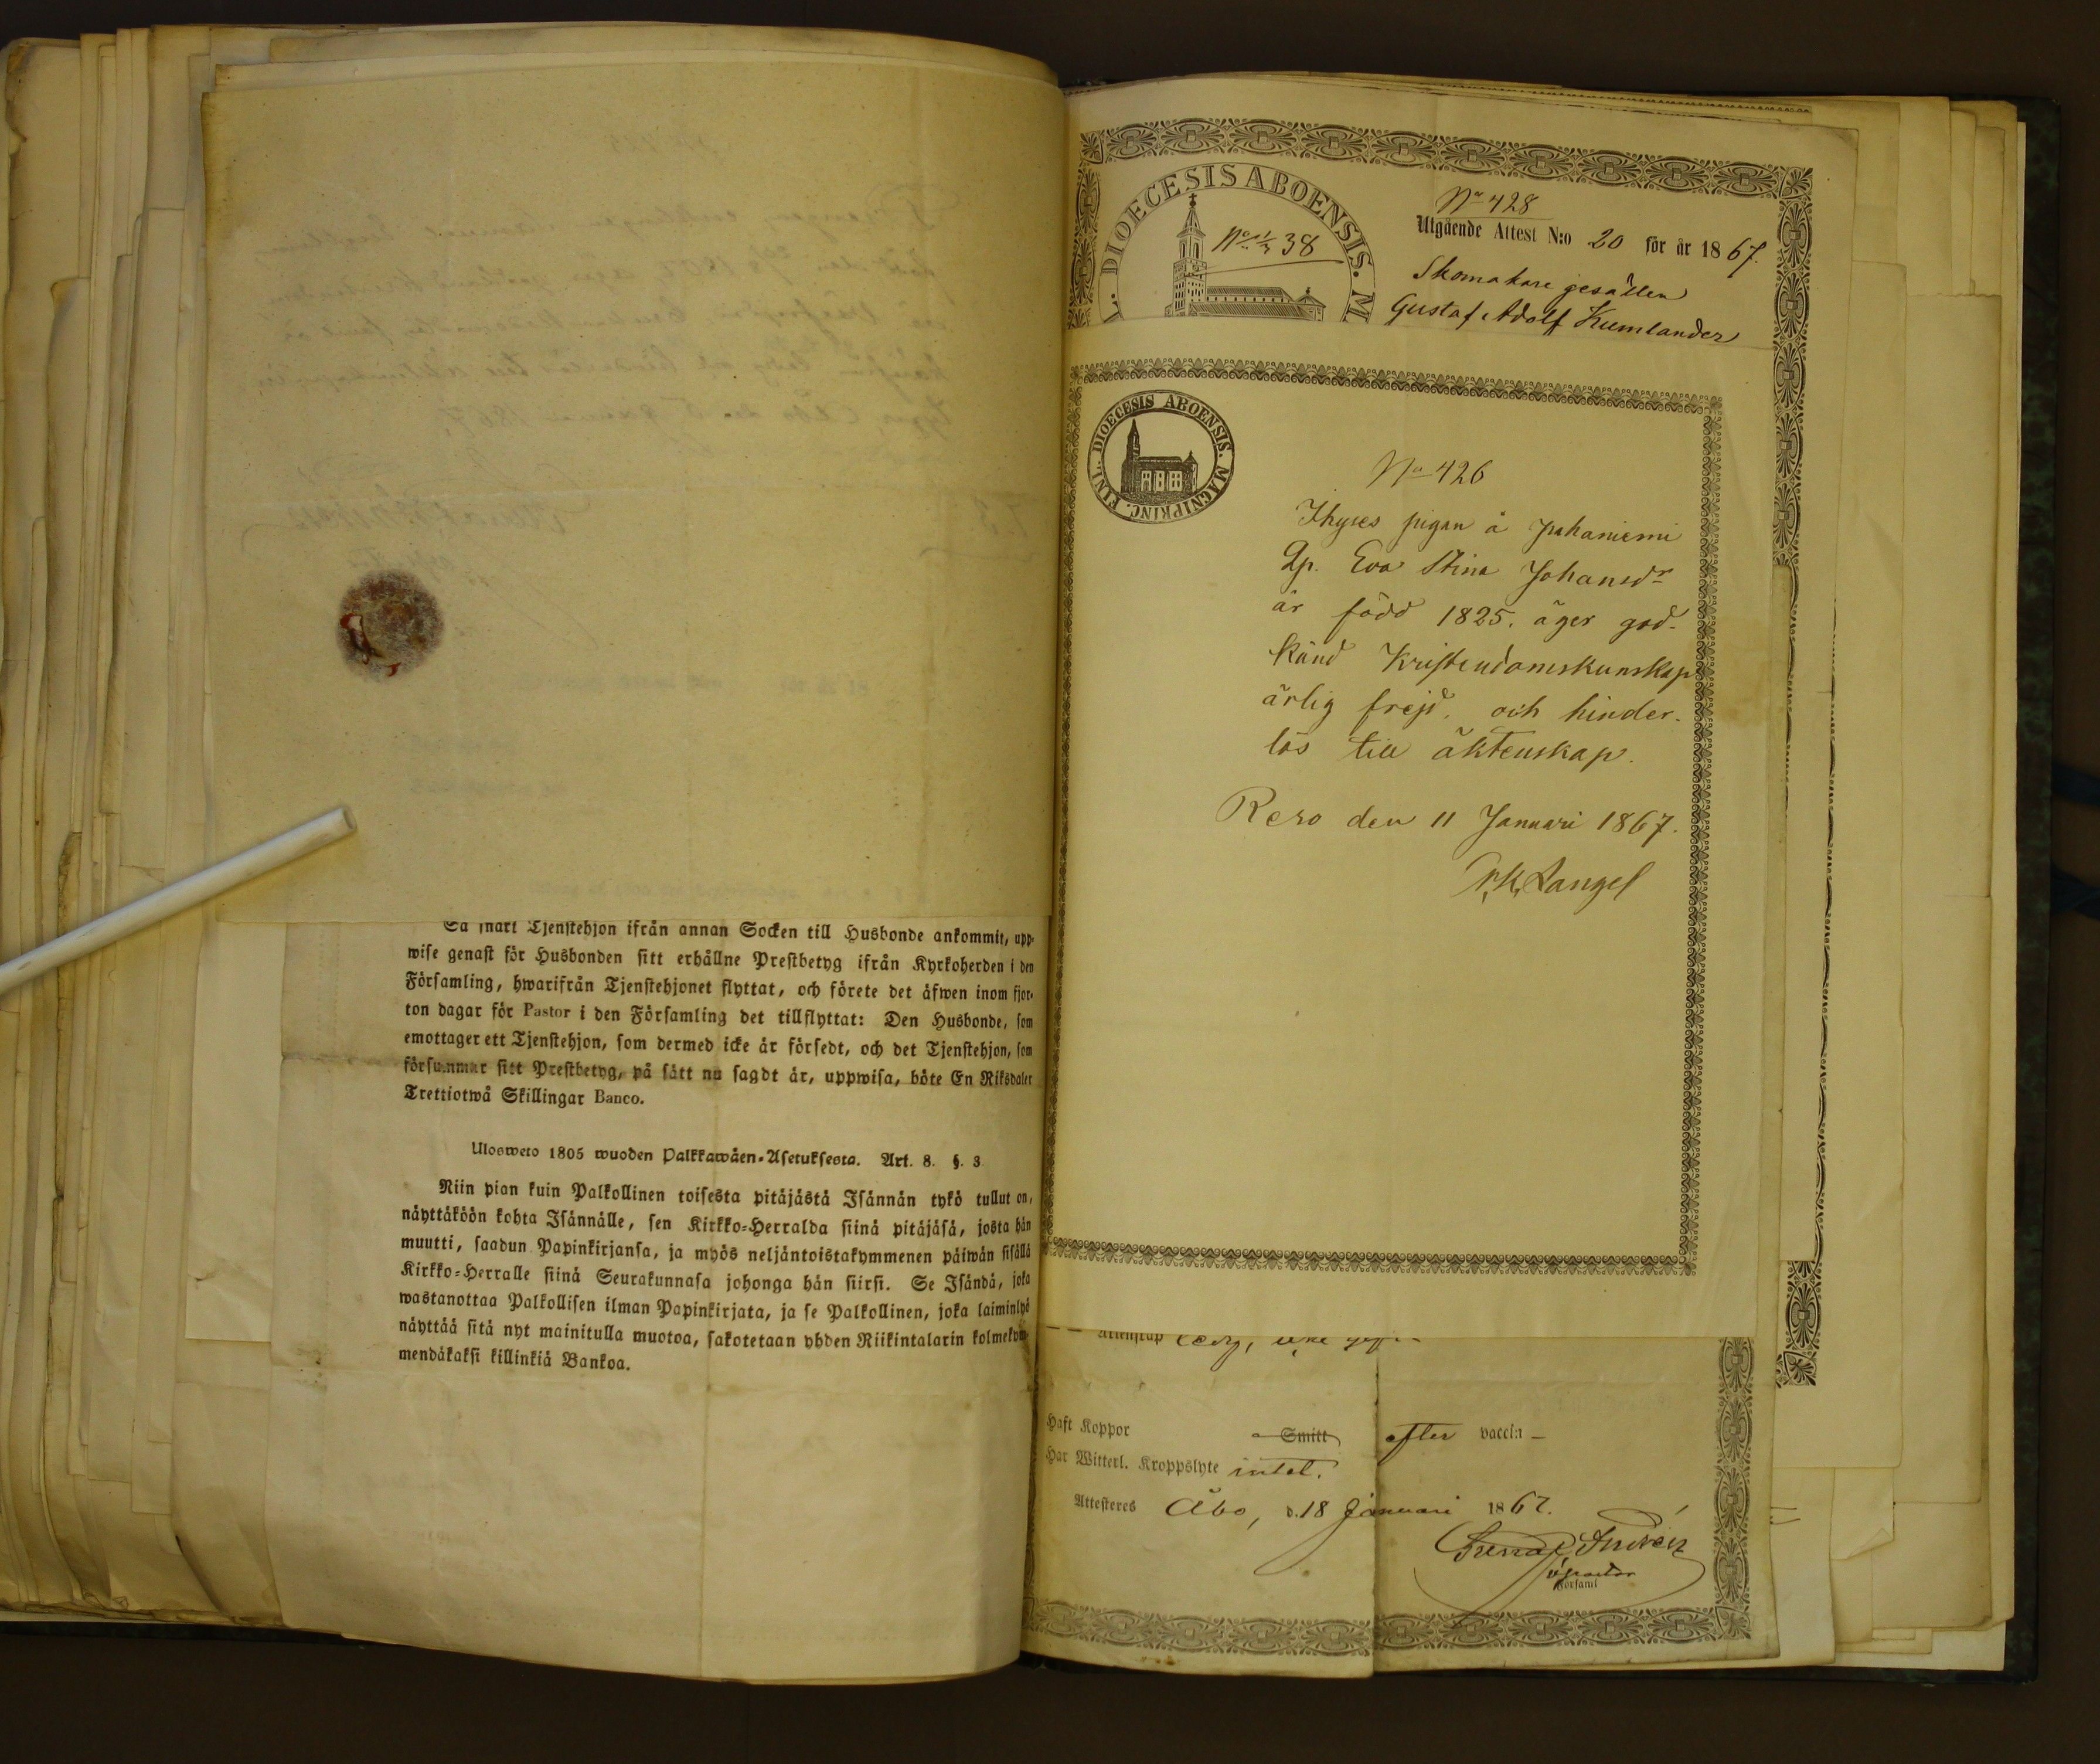 Så snart Tjenstehjon ifrån annan Socken till Husbonde ankommit, upp-
wise genast för Husbonden sitt erhållne Prestbetyg ifrån Kyrkoherden i den
Församling, hwarifrån Tjenstehjonet flyttat, och förete det äfwen inom fjor-
ton dagar för Pastor i den Församling det tillflyttat: Den Husbonde, som
emottager ett Tjenstehjon, som dermed icke är försedt, och det Tjenstehjon, som
försummar sitt Prestbetyg, på sätt nu sagdt är, uppwisa, böte En Riksdaler
Trettiotwå Skillingar Banco.
Ulosweto 1805 wuoden Palkkawäen-Asetuksesta. Art. 8. §. 3.
Niin pian kuin Palkollinen toisesta pitäjästä Isännän tykö tullut on,
näyttäköön kohta Isännälle, sen Kirkko-Herralda siinä pitäjäsä, josta hän
muutti, saadun Papinkirjansa, ja myös neljäntoistakymmenen päiwän sisällä
Kirkko-Herralle siinä Seurakunnasa johonga hän siirsi. Se Isändä, joka
wastanottaa Palkollisen ilman Papinkirjata, ja se Palkollinen, joka laiminlyö
näyttää sitä nyt mainitulla muotoa, sakotetaan yhden Riikintalarin kolmekym-
mendäkaksi killinkiä Bankoa.
DIOECESIS ABOENSIS. M
38
No 428
Utgående Attest N:o 20 för år 1867.
Skomakare gesällen
Gustaf Adolf Kumlander
FINL. DIOECESIS ABOENSIS. MAGNI PRINC.
No 426
Ihyres pigan å Pahaniemi
Qp. Eva Stina Johansdr
är född 1825. äger god-
känd Kristendomskunskap
ärlig frejd. och hinder-
lös till äktenskap.
Reso den 11 Januari 1867.
Langel
äktenskap ledig,
Haft Koppor Smitt efter vaccin –
Har Witterl. Kroppslyte intet.
Attesteres Åbo, d. 18 Januari 1867.
v pastor
Församl